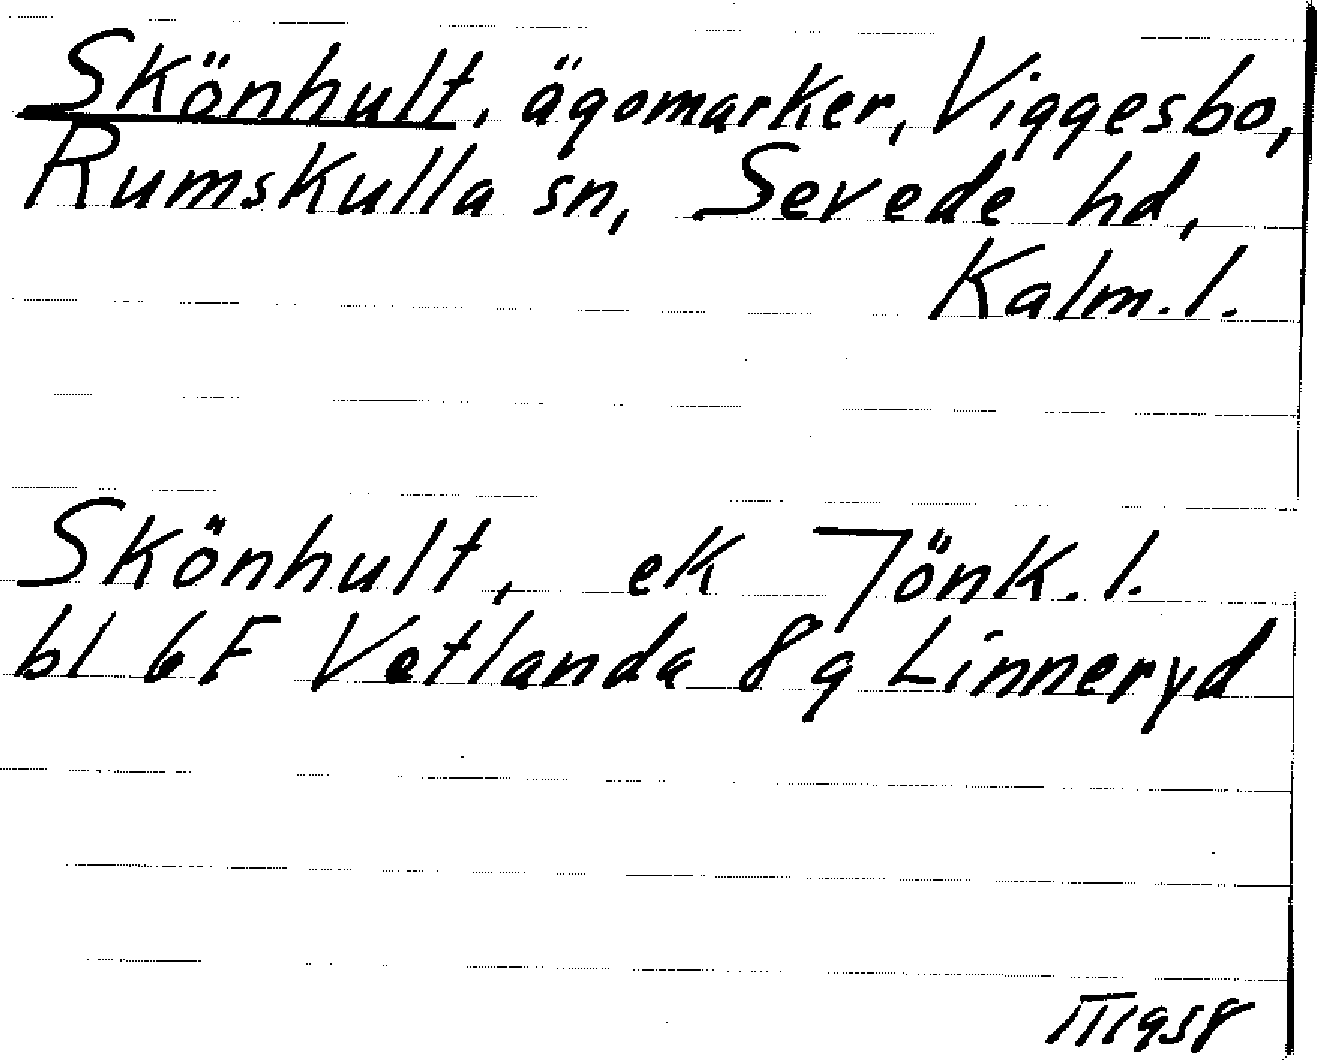 Skönhult, ägomarker, Viggesbo,
Rumskulla sn, Sevede hd,
Kalm.l.
Skönhult, ek Jönk.l.
bl 6F Vetlanda 8g Linneryd